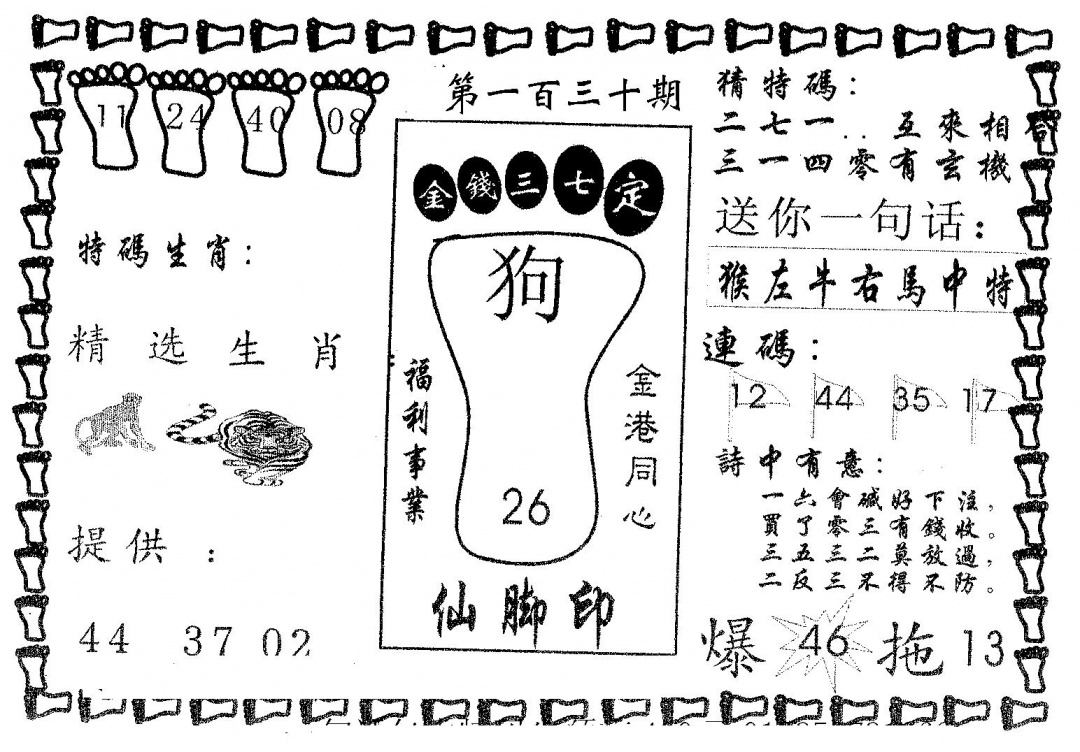 第一百三十期
11 24 40 08
特碼生肖：
精选生肖：
提供：
44 37 02
金錢三七定
狗
福利事業
金港同心
26
仙脚印
猜特碼：
二七一..互來相合
三一四零有玄機
送你一句话：
猴左牛右馬中特
連碼：
12 44 35 17
詩中有意：
一六會碱好下注，
買了零三有錢收。
三五三二莫放過，
二反三不得不防。
爆 46 拖 13